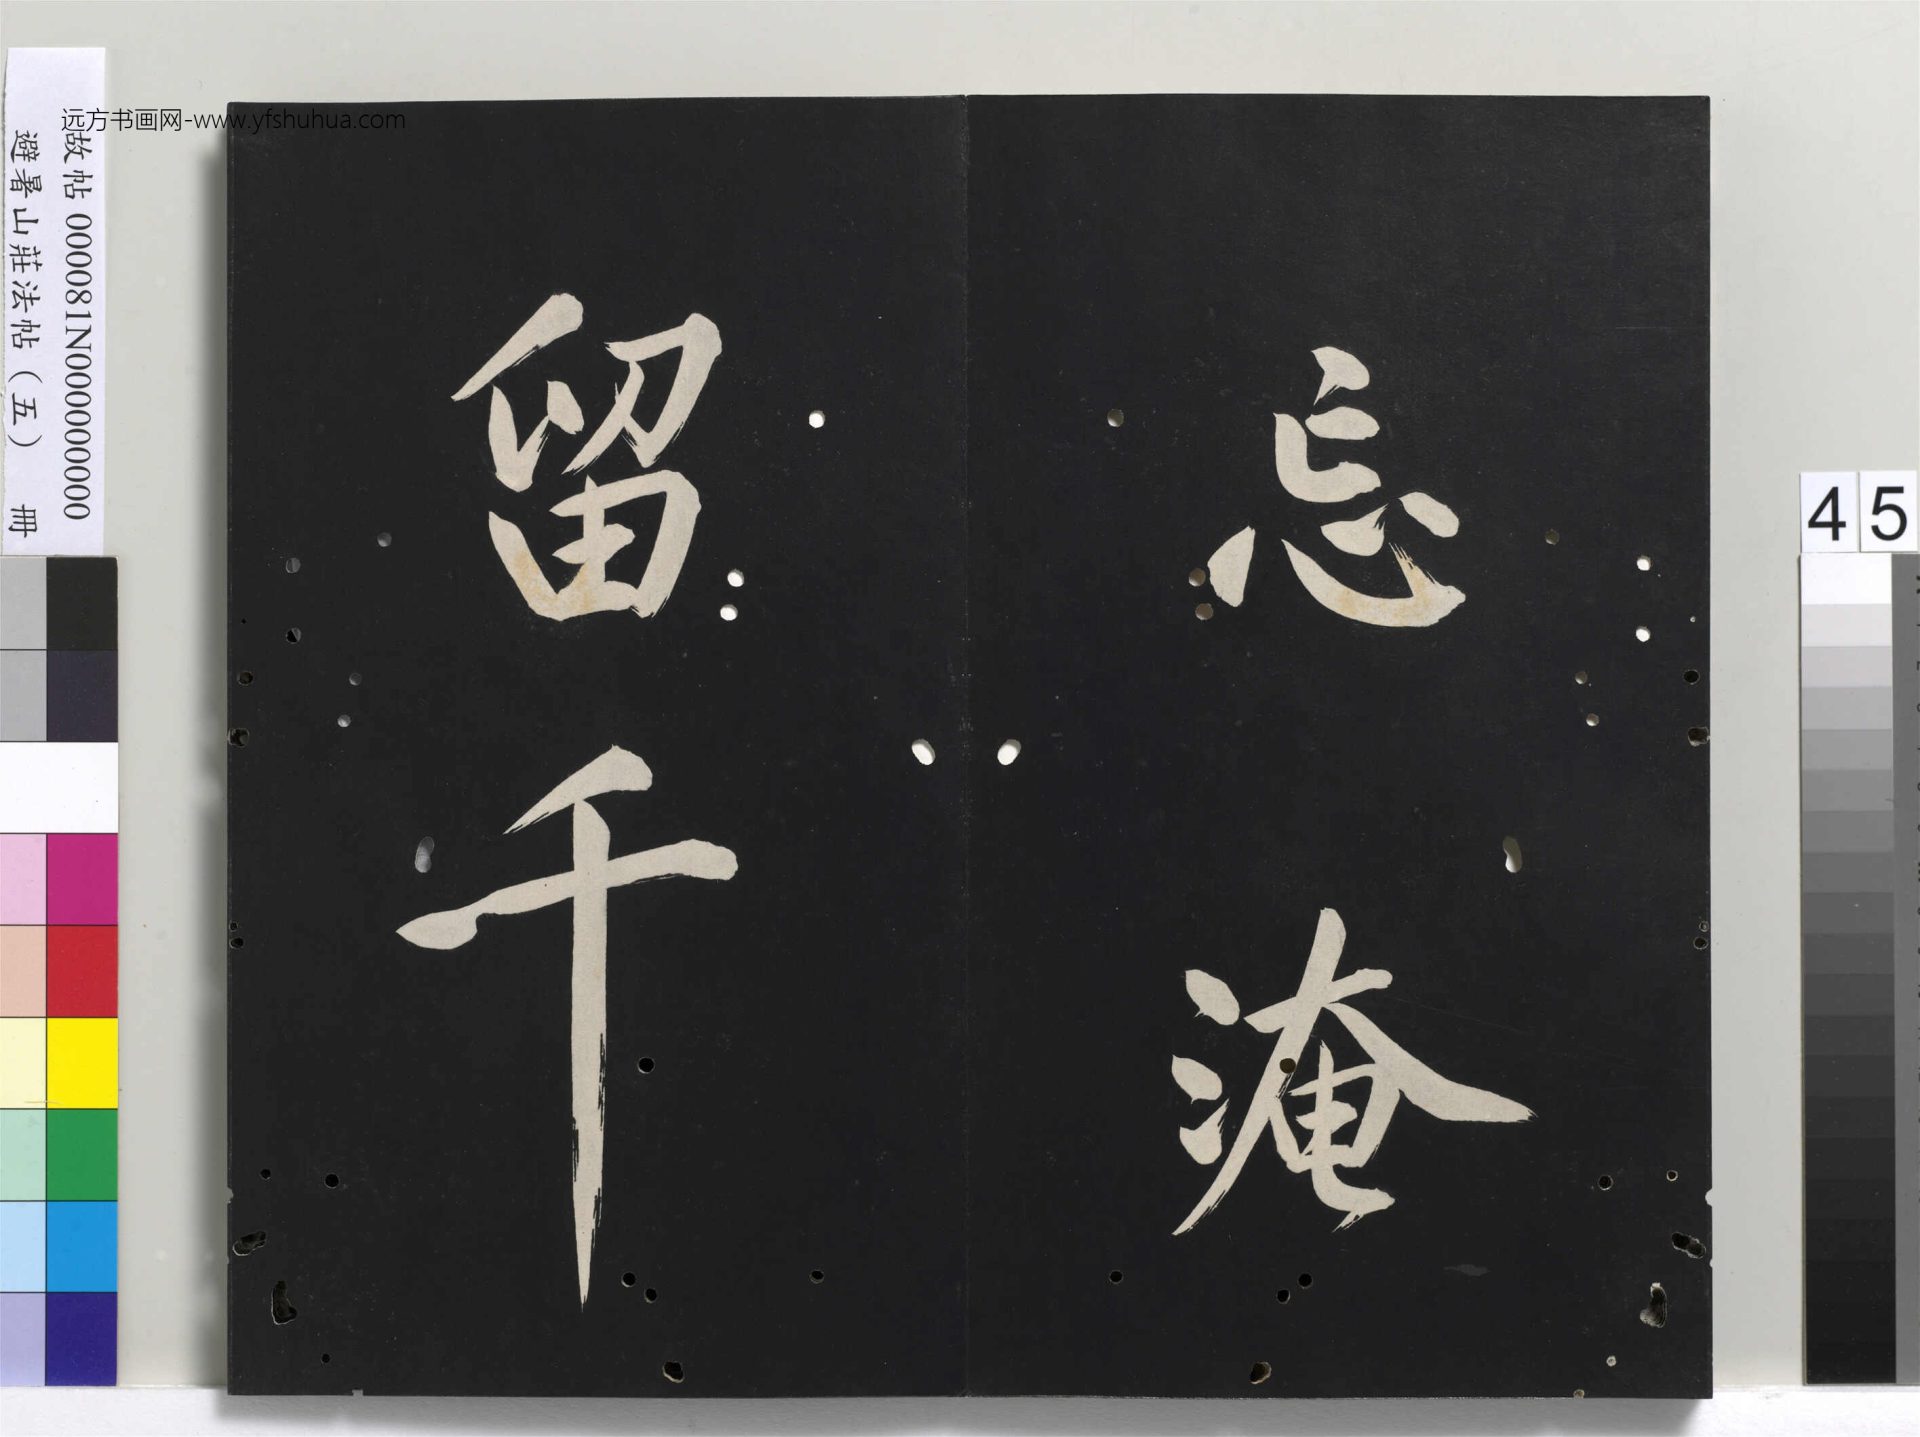 远方书画网-www.yfshuhua.com
故帖 000081N000000000
避暑山莊法帖（五） 冊
45
忘淹
留千